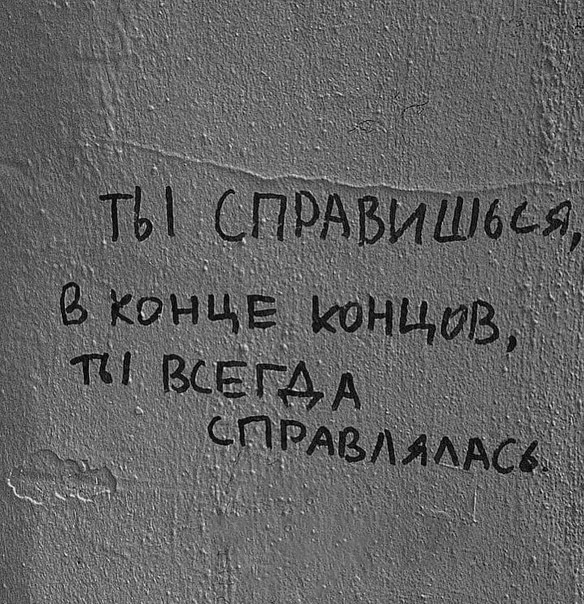 ТЫ СПРАВИШЬСЯ,
В КОНЦЕ КОНЦОВ,
ТЫ ВСЕГДА
СПРАВЛЯЛАСЬ.